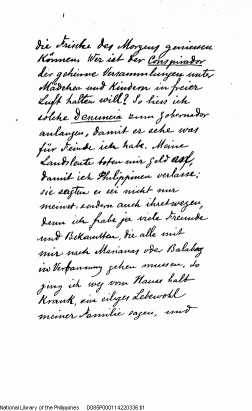 die Frische des Morgens geniessen
können. Wer ist der Conspirador
der geheime Versammlungen unter
Mädchen und Kindern in freier
Luft halten will? So liess ich
solche Denuncia zum Gobernador
anlangen, damit er sehe was
für Feinde ich habe. Meine
Landsleute boten mir Geld auf,
damit ich Philippinen verlasse;
sie sagten es sei nicht nur
meinet, sondern auch ihretwegen,
denn ich habe ja viele Freunde
und Bekannten, die alle mit
mir nach Marianas oder Balabag
in Verbannung gehen müssen. So
ging ich weg vom Hause halb
Krank, ein eiliges Lebewohl
meiner Familie sagen, und
National Library of the Philippines D085P000114220336.tif